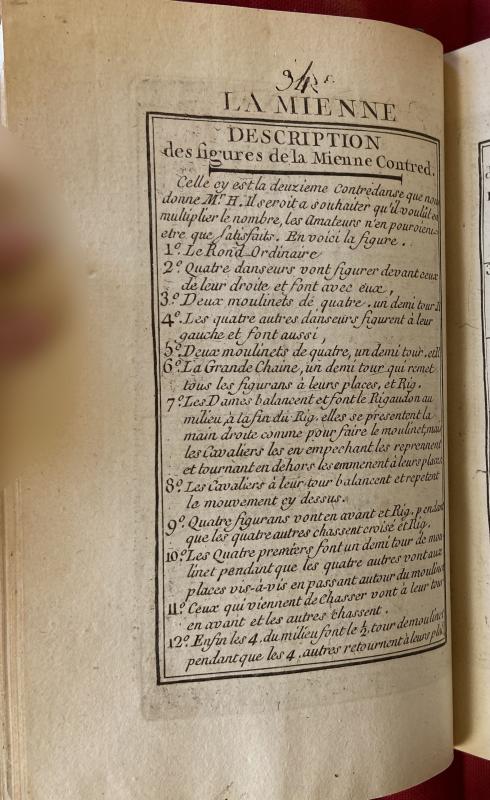 34e.
LA MIENNE
DESCRIPTION
des figures de la Mienne Contred.
Celle cy est la deuzieme Contredanse que nou
donne Mr. H. Il seroit a souhaiter qu'il voulut en
multiplier le nombre, les Amateurs n'en pouroient
etre que satisfaits. En voici la figure.
1o. Le Rond Ordinaire
2o. Quatre danseurs vont figurer devant ceux
de leur droite et font avec eux,
3o. Deux moulinets de quatre. un demi tour. R
4o. Les quatre autres danseurs figurent à leur
gauche et font aussi,
5o. Deux moulinets de quatre, un demi tour. et R.
6o. La Grande Chaine, un demi tour qui remet
tous les figurans à leurs places, et Rig.
7o. Les Dames balancent et font le Rigaudon au
milieu, à la fin du Rig. elles se presentent la
main droite comme pour faire le moulinet, mais
les Cavaliers les en empechant les reprennent
et tournant en dehors les emmenent à leurs places
8o. Les Cavaliers à leur tour balancent et repetent
le mouvement cy dessus.
9o. Quatre figurans vont en avant et Rig. pendant
que les quatre autres chassent croisé et Rig.
10o. Les Quatre premiers font un demi tour de mou
linet pendant que les quatre autres vont aux
places vis-à-vis en passant autour du moulinet
11o. Ceux qui viennent de Chasser vont à leur tour
en avant et les autres chassent.
12o. Enfin les 4. du milieu font le ½ tour de moulinet
pendant que les 4. autres retournent à leurs pla